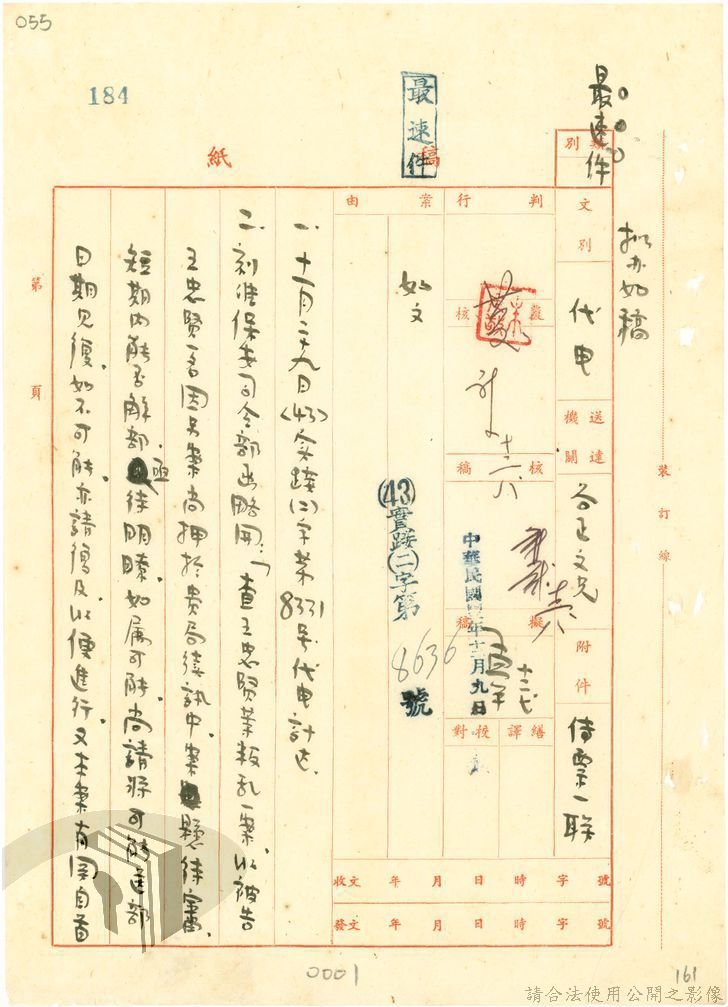 055
184
最速件
最速件
擬办如稿
稿
紙
類別
文別
代电
送達機關
谷正文兄
附件
傳票一聯
判行
覆核
核稿
擬稿
繕譯
校對
十二八
十二七
中華民國四三年十二月九日
案由
如文
(43)實踐(二)字第
8636
號
收文 年 月 日 時 字 號
發文 年 月 日 時 字 號
一、十一月二十九日(43)实踐(二)字第8331号代电計达.
二、刻准保安司令部函略開：「查王忠賢等叛乱一案，以被告
王忠賢一名因另案尚押於貴局續訊中，案懸待審，
短期內能否解部，亟待明瞭，如属可能，尚請將可能送部
日期見復，如不可能，亦請復及，以便進行，又本案有関自首
第 頁
裝訂線
0001
161
請合法使用公開之影像